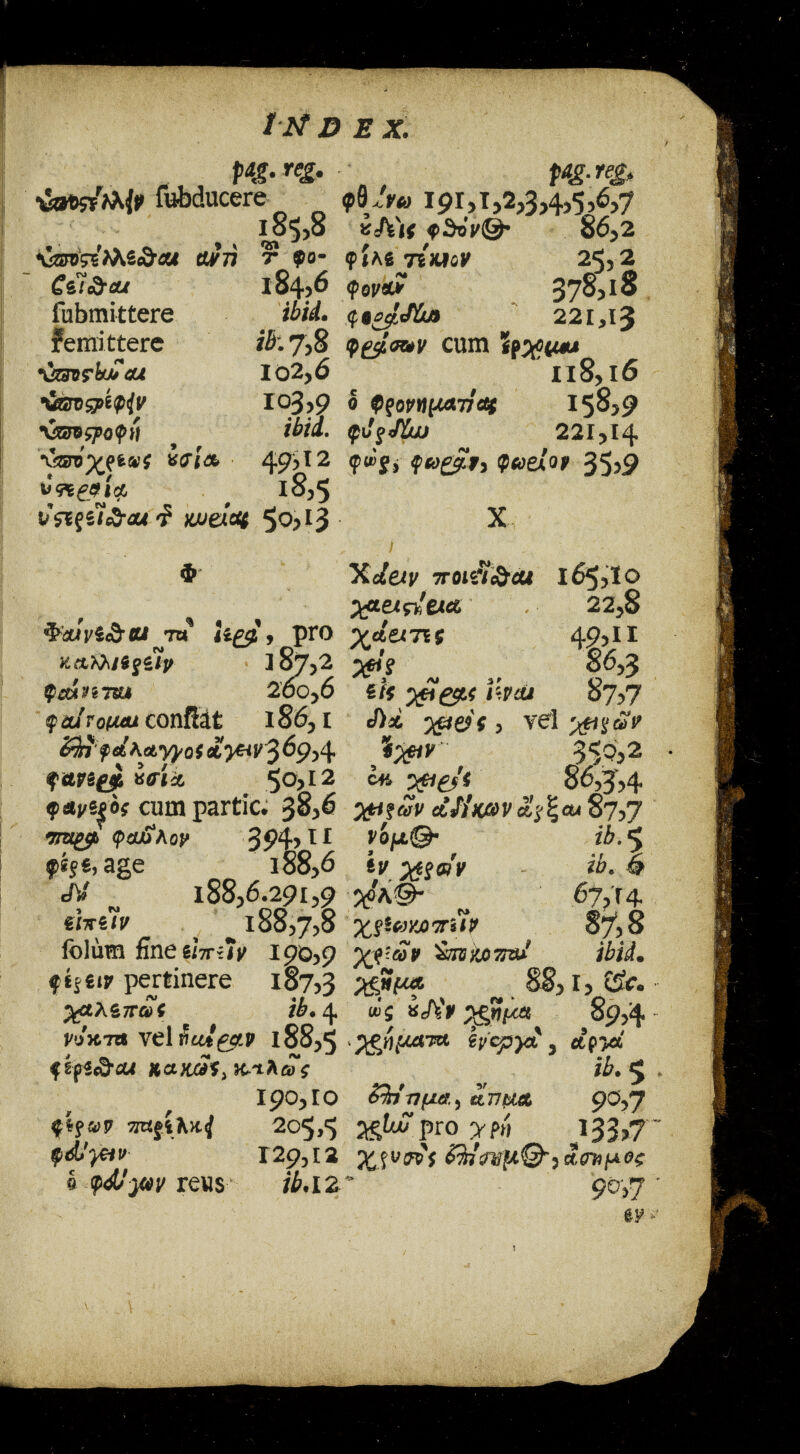 INDEX.
pag. reg.
ὑποστέλλειν ſubducere
185,8
ὑποστέλλεσθαι ἀντὶ τ φο-
βεῖσθαι 184,6
ſubmittere ibid.
remittere ib. 7,8
ὑποστῆναι 102,6
ὑποστρέφειν 103,9
ὑποστροφὴ ibid.
ὑπόχρεως οὐσία 49,12
ὑστερία 18,5
ὑστερεῖσθαι τ κυρείας 50,13
Φ
Φαίνεσθαι τὰ ἱερά, pro
καλλιερεῖν 187,2
φαίνεται 260,6
φαίνομαι conſtat 186,1
ἐπὶ φάλαγγος ἄγειν 369,4
φανερὰ οὐσία 50,12
φανερὸς cum partic. 38,6
παρὰ φαῦλον 394,11
φέρε, age 188,6
δὴ 188,6.291,9
εἰπεῖν 188,7,8
ſolùm ſine εἰπεῖν 190,9
φέρειν pertinere 187,3
χαλεπῶς ib. 4
νύκτα vel ἡμέραν 188,5
φέρεσθαι κακῶς, καλῶς
190,10
φέρων παρεῖλκε 205,5
φεύγειν 129,12
ὁ φεύγων reus ib.12
pag. reg.
φθάνω 191,1,2,3,4,5,6,7
οὐδεὶς φθόνος 86,2
φίλε τέκνον 25,2
φονᾶν 378,18
φοράδην 221,13
φράσων cum ἔρχομαι
118,16
ὁ φρονήματίας 158,9
φύρδην 221,14
φὼρ, φωρᾶν, φωρίον 35,9
X
Χάριν ποιεῖσθαι 165,10
χαριστήρια 22,8
χάριτες 49,11
χεὶρ 86,3
εἰς χεῖρας ἰέναι 87,7
διὰ χειρὸς, vel χειρῶν
ἔχειν 350,2
ἐκ χειρὸς 86,3,4
χειρῶν ἀδίκων ἄρξαι 87,7
νόμος ib.5
ἐν χερσὶν ib. 6
χόλος 67,14
χρεωκοπεῖν 87,8
χρεῶν ἀποκοπαὶ ibid.
χρῆμα 88,1, &c.
ὡς οὐδὲν χρῆμα 89,4
χρήματα ἐνεργὰ, ἀργὰ
ib. 5
ἐπίτιμα, ἄτιμα 90,7
χρῆν pro χρὴ 133,7
χρυσὸς ἐπίσημος, ἄσημος
90,7
ἐν